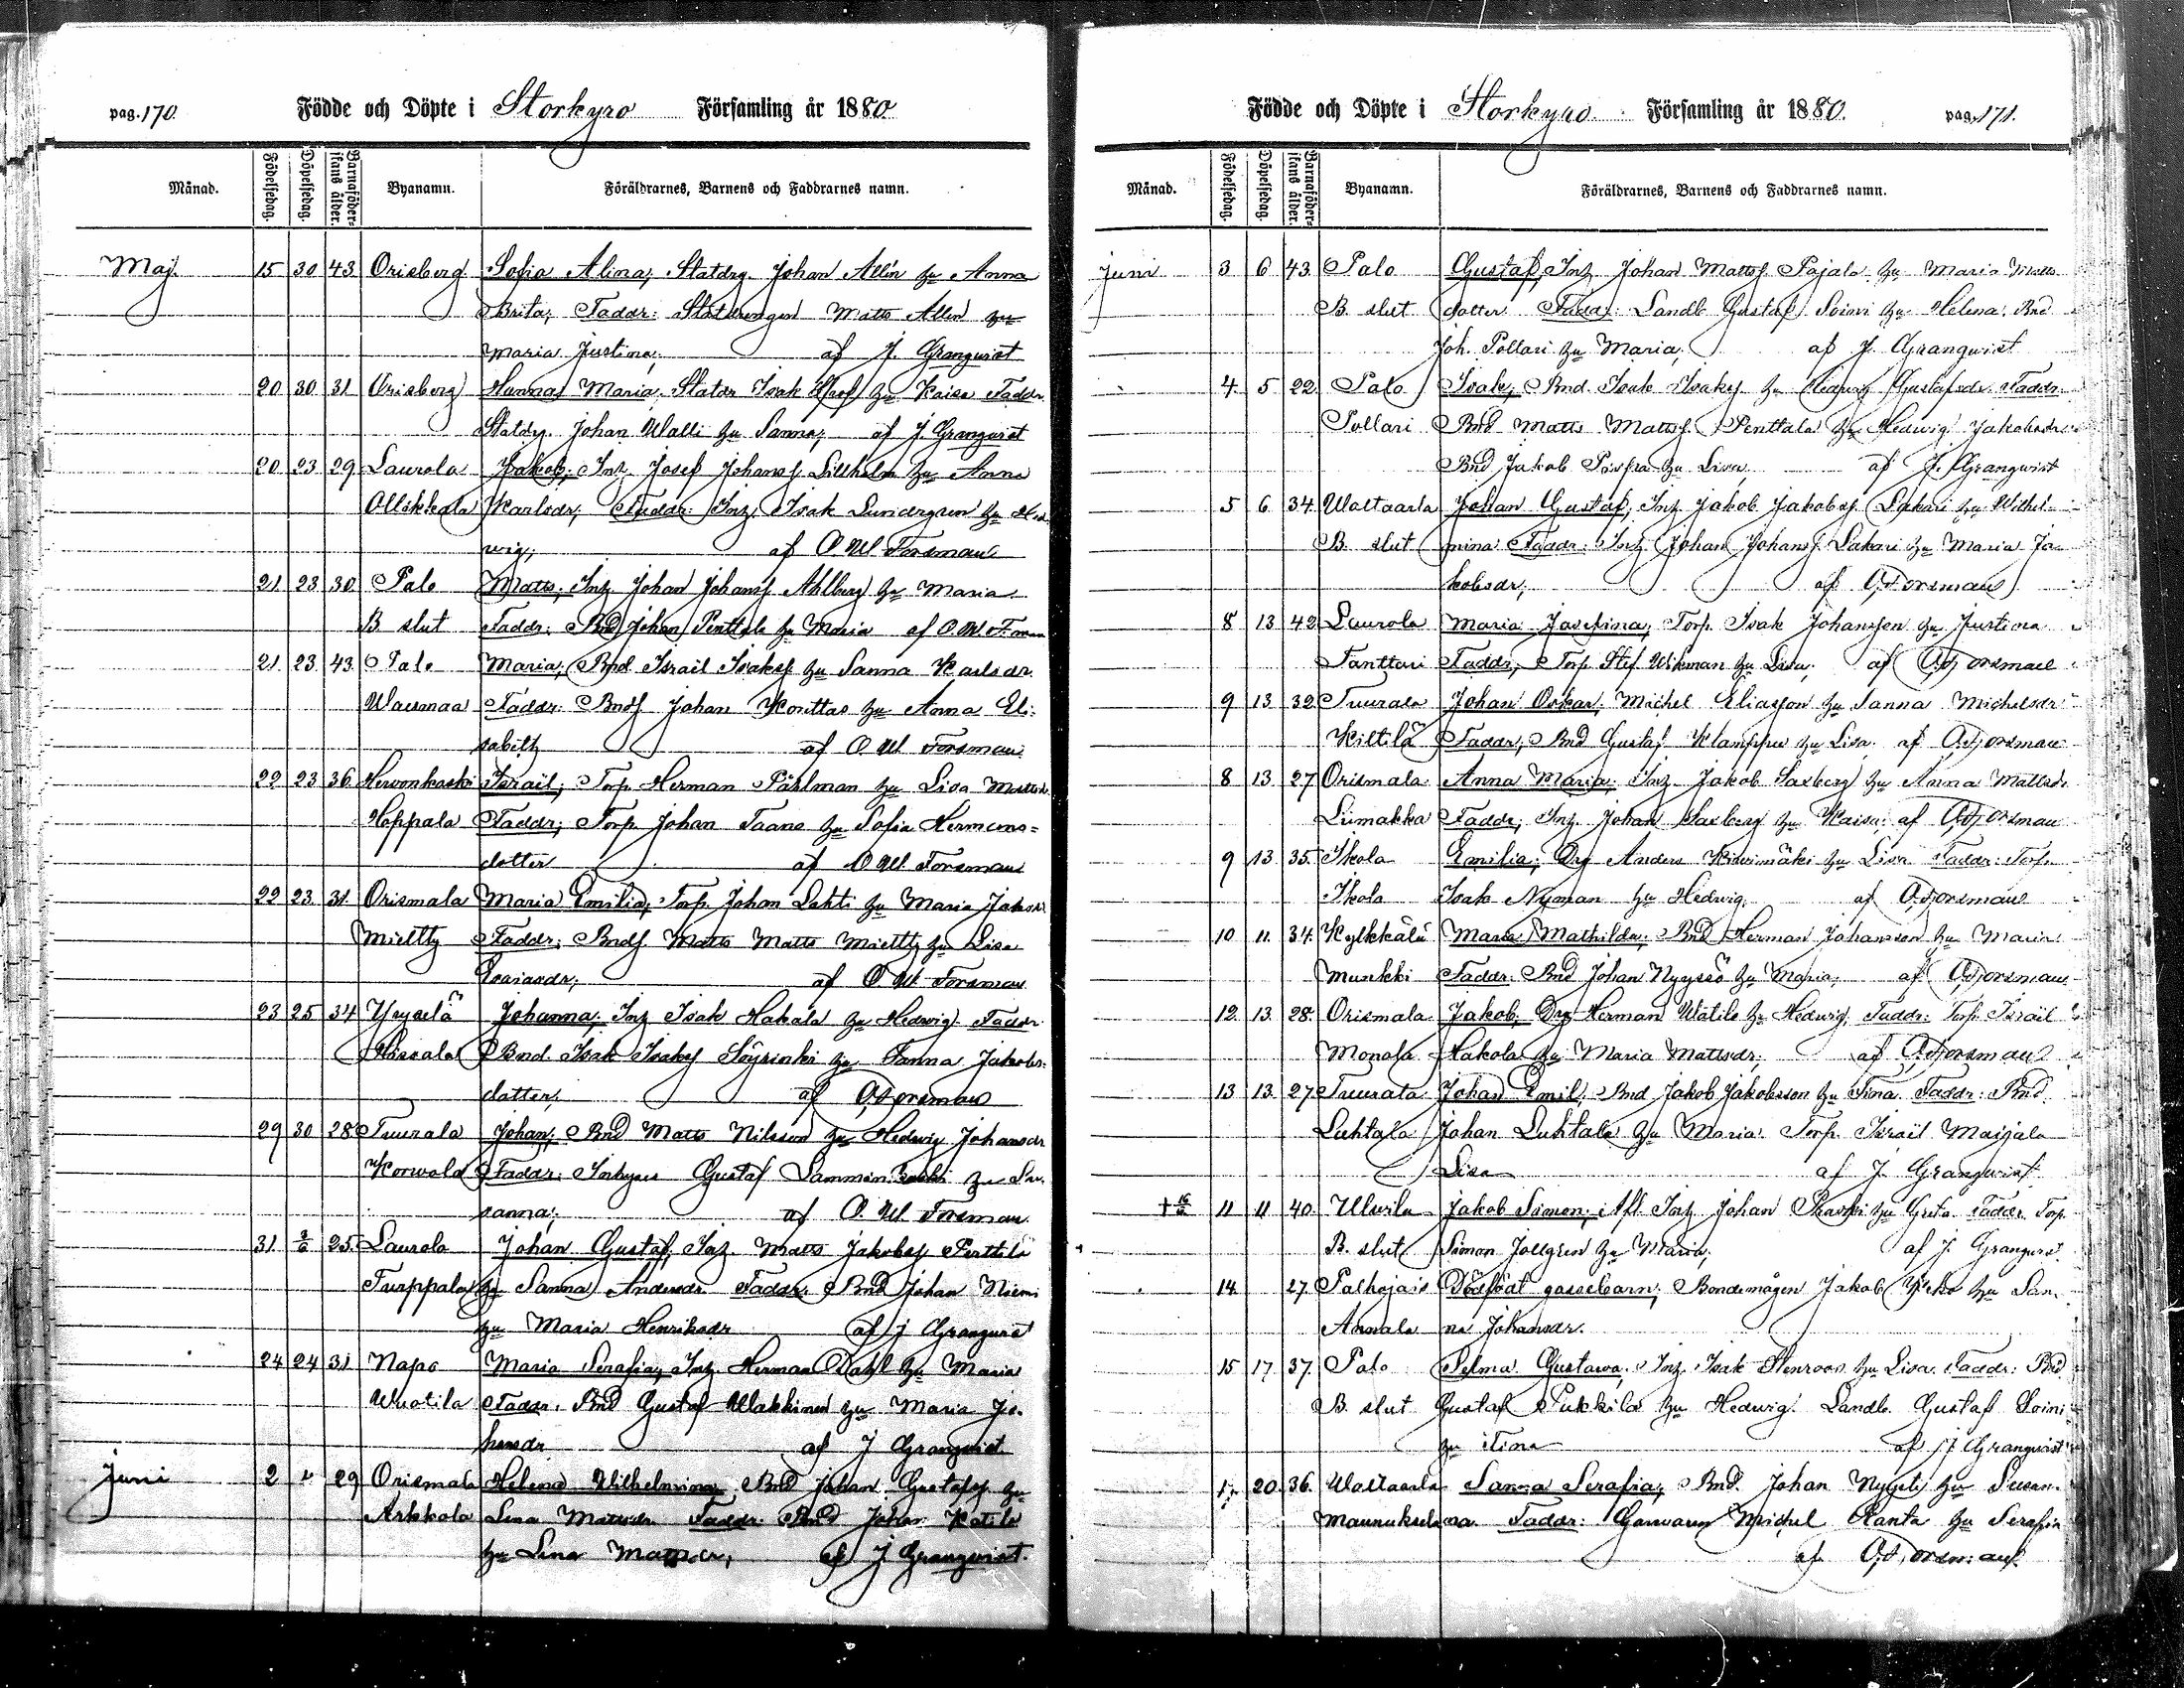 pag. 170. Födde och Döpte i Storkyro Församling år 1880
Månad. Födelsedag. Döpelsedag. Barnaföderskans ålder. Byanamn. Föräldrarnes, Barnens och Faddrarnes namn.
Maj. 15 30 43 Orisberg Sofia Alina; Statdrg Johan Allén hu Anna
Brita; Faddr: Statdrengen Matts Allén hu
Maria Justina; af J. Granqvist
20 30 31 Orisberg Hanna Maria; Statdr Isak hu Kaisa Faddr
Statdr. Johan Walli hu Sanna; af J. Granqvist
20 23 29 Laurola Jakob; Inh. Josef Johans. Lillholm hu Anna
Ollikkala Karlsdr; Faddr: Inh. Isak Lundgren hu Hed
wig; af O W Forsman
21 23 30 Palo Matts; Inh Johan Johans. Ahlberg hu Maria
B slut Faddr: Bnd Johan Penttala hu Maria af O. W. Forsman
21 23 43 Palo Maria; Bnd Israil Isaks. hu Sanna Karlsdr.
Wainaa Faddr: Bnds. Johan Konttas hu Anna Eli-
sabeth af O. W. Forsman
22 23 36 Herwonkoski Israil; Torp. Herman Påhlman hu Lisa Mattsdr
Hoppala Faddr; Torp. Johan Taano hu Sofia Hermans=
dotter af O. W. Forsman
22 23 31 Orismala Maria Emilia; Torp. Johan Lahti hu Maria Jakobdr
Mietty Faddr; Bnds. Matts Matts Mietty hu Lisa
Esaiasdr; af O. W. Forsman
23 25 34 Yryselä Johanna; Inh Isak Hakala hu Hedwig Faddr
Hissala Bnd. Isak Isaks. Söyrinki hu Sanna Jakobs-
dotter; af O. Forsman
29 30 28 Tuurala Johan; Bnd Matts Nilsson hu Hedwig Johansdr
Korwola Faddr: Inhyses Gustaf Samminkoski hu Su-
sanna; af O. W. Forsman
31 2/6 25 Laurola Johan Gustaf; Inh. Matts Jakobs. Perttilä
Turppala hu Sanna Andersdr Faddr: Bnd Johan Niemi
hu Maria Henriksdr af J Granqvist
24 24 31 Napo Maria Serafia; Inh Herman Dahl hu Maria
Wuotila Faddr. Bnd Gustaf Wakkinen hu Maria Jo-
hansdr af J Granqvist
Juni 2 4 29 Orismala Helena Wilhelmina Bnd Johan Gustafs. hu
Arkkola Lena Mattsdr Faddr: Bnd Johan Kotila
hu Lina Mattsdr; af J Granqvist.
Födde och Döpte i Storkyro Församling år 1880. pag. 171.
Månad. Födelsedag. Döpelsedag. Barnaföderskans ålder. Byanamn. Föräldrarnes, Barnens och Faddrarnes namn.
Juni 3 6 43 Palo Gustaf, Inh Johan Matts. Pajala hu Maria Matts
B. slut dotter Faddr: Landb Gustaf Soini hu Helena; Bnd
Joh. Pollari hu Maria; af J. Granqvist
4 5 22 Palo Isak; Bnd. Isak Isaks hu Hedwig Gustafsdr. Faddr.
Pollari Bnd Matts Matts. Penttala hu Hedwig Jakobsdr
Bnd Jakob hu Lisa; af J. Granqvist
5 6 34 Waltaarla Johan Gustaf; Inh Jakob Jakobs. Sakari hu Wilhel-
B. slut mina Faddr: Inh Johan Johans. Sakari hu Maria Ja-
kobsdr; af O. Forsman
8 13 42 Laurola Maria Josefina; Torp. Isak Johansson hu Justina
Tanttari Faddr; Torp Stef Wikman hu Lisa; af O. Forsman
9 13 32 Tuurala Johan Oskar; Michel Eliasson hu Sanna Michelsdr
Kiltilä Faddr; Bnd Gustaf Klamppu hu Lisa. af O. Forsman
8 13 27 Orismala Anna Maria; Inh Jakob Saxberg hu Anna Mattsdr
Liimakka Faddr; Inh Johan Saxberg hu Kaisa; af O. Forsman
9 13 35 Ikola Emilia; Drg Anders Kiwimäki hu Lisa Faddr: Torp.
Ikola Isak Nyman hu Hedwig. af O. Forsman
10 11 34 Kylkkälä Maria Mathilda; Bnd Herman Johansson hu Maria
Munkki Faddr: Bnd Johan Nyyssö hu Maria; af O. Forsman
12 13 28 Orismala Jakob; Drg Herman Wätilo hu Hedwig; Faddr: Torp. Israil
Monola Hakola hu Maria Mattsdr; af O. Forsman
13 13 27 Tuurala Johan Emil; Bnd Jakob Jakobsson hu Tina. Faddr: Bnd
Luhtala Johan Luhtala hu Maria. Torp. Israil Maijala
Lisa af J. Granqvist
+ 11 11 40 Ulwila Jakob Simon; Afl. Inh Johan hu Greta Faddr. Torp
B. slut Simon Jollgren hu Maria; af J. Granqvist
14 27 Palhojais Dödfödt gossebarn; Bondemågen Jakob hu San-
Annala na Johansdr.
15 17 37 Palo Selma Gustawa; Inh. Isak Stenroos hu Lisa. Faddr: Bnd
B. slut Gustaf Pukkila hu Hedwig. Landb. Gustaf Soini
hu Stina af J Granqvist
17 20 36 Waltaarla Sanna Serafia; Bnd. Johan Nygeli hu Susan-
Maunuksela na. Faddr: Garwaren Michel Ranta hu Serafia
af O. Forsman